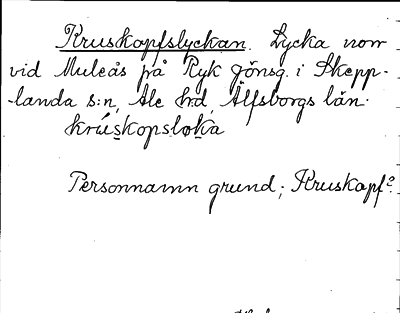 Kruskopfslyckan. Lycka norr
vid Muleås på Ryk Jönsg. i Skepp-
-landa s:n, Ale h:d, Älfsborgs län.
kruskopsloka
Personnamn grund; Kruskopf?